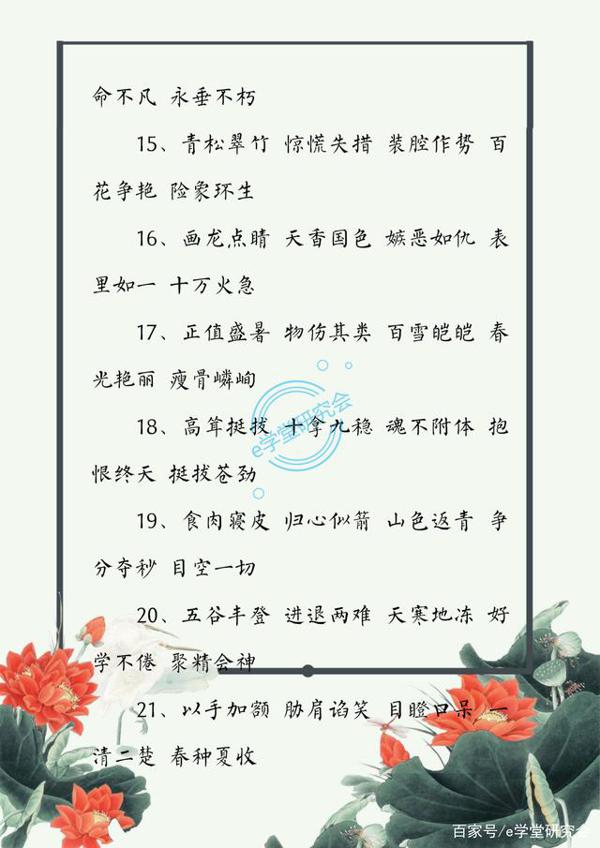 命不凡 永垂不朽
15、青松翠竹 惊慌失措 装腔作势 百
花争艳 险象环生
16、画龙点睛 天香国色 嫉恶如仇 表
里如一 十万火急
17、正值盛暑 物伤其类 百雪皑皑 春
光艳丽 瘦骨嶙峋
18、高耸挺拔 十拿九稳 魂不附体 抱
恨终天 挺拔苍劲
e学堂研究会
19、食肉寝皮 归心似箭 山色返青 争
分夺秒 目空一切
20、五谷丰登 进退两难 天寒地冻 好
学不倦 聚精会神
21、以手加额 胁肩谄笑 目瞪口呆 一
清二楚 春种夏收
百家号/e学堂研究会